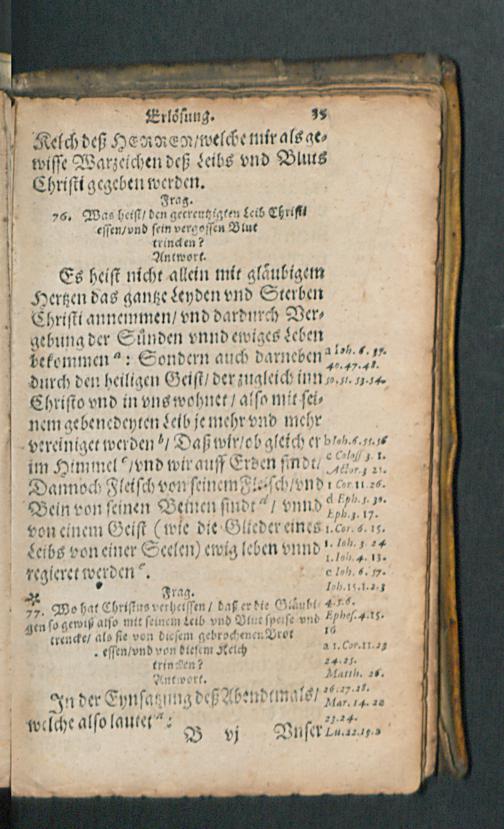 Erlösung. 35
Kelch deß HERREN/welche mir als ge-
wisse Warzeichen deß Leibs vnd Bluts
Christi gegeben werden.
Frag.
76. Was heist/ den gecreutzigten Leib Christi
essen/vnd sein vergossen Blut
trincken?
Antwort.
Es heist nicht allein mit gläubigem
Hertzen das gantze Leyden vnd Sterben
Christi annemmen/ vnd dardurch Ver-
gebung der Sünden vnnd ewiges Leben
bekommen a: Sondern auch darneben
durch den heiligen Geist/ der zugleich inn
Christo vnd in vns wohnet/ also mit sei-
nem gebenedeyten Leib je mehr vnd mehr
vereiniget werden b/ Daß wir/ob gleich er
im Himmel c/vnd wir auff Erden sindt/
Dannoch Fleisch von seinem Fleisch/vnd
Bein von seinen Beinen sindt d/ vnnd
von einem Geist (wie die Glieder eines
Leibs von einer Seelen) ewig leben vnnd
regieret werden e.
a Ioh. 6. 35.
40.47.48.
50.51.53.54.
b Ioh.6.55.56
c Coloss 3. 1.
Actor.3 21.
1 Cor.11.26.
d Eph.5.30.
Eph.3.17.
1.Cor. 6. 15.
1. Ioh. 3. 24
1.Ioh.4. 13.
e Ioh. 6. 57.
Ioh.15.1.2.3
4.5.6.
Ephes.4.15.
16
Frag.
77. Wo hat Christus verheissen/ daß er die Gläubi-
gen so gewiß also mit seinem Leib vnd Blut speise vnd
trencke/ als sie von diesem gebrochenen Brot
essen/vnd von diesem Kelch
trincken?
Antwort.
In der Eynsatzung deß Abendtmals/
welche also lautet a:
a 1.Cor.11.23
24.25.
Matth. 26.
26.27.28.
Mar. 14. 22
23.24.
Lu.22.19.2
B vj Vnser